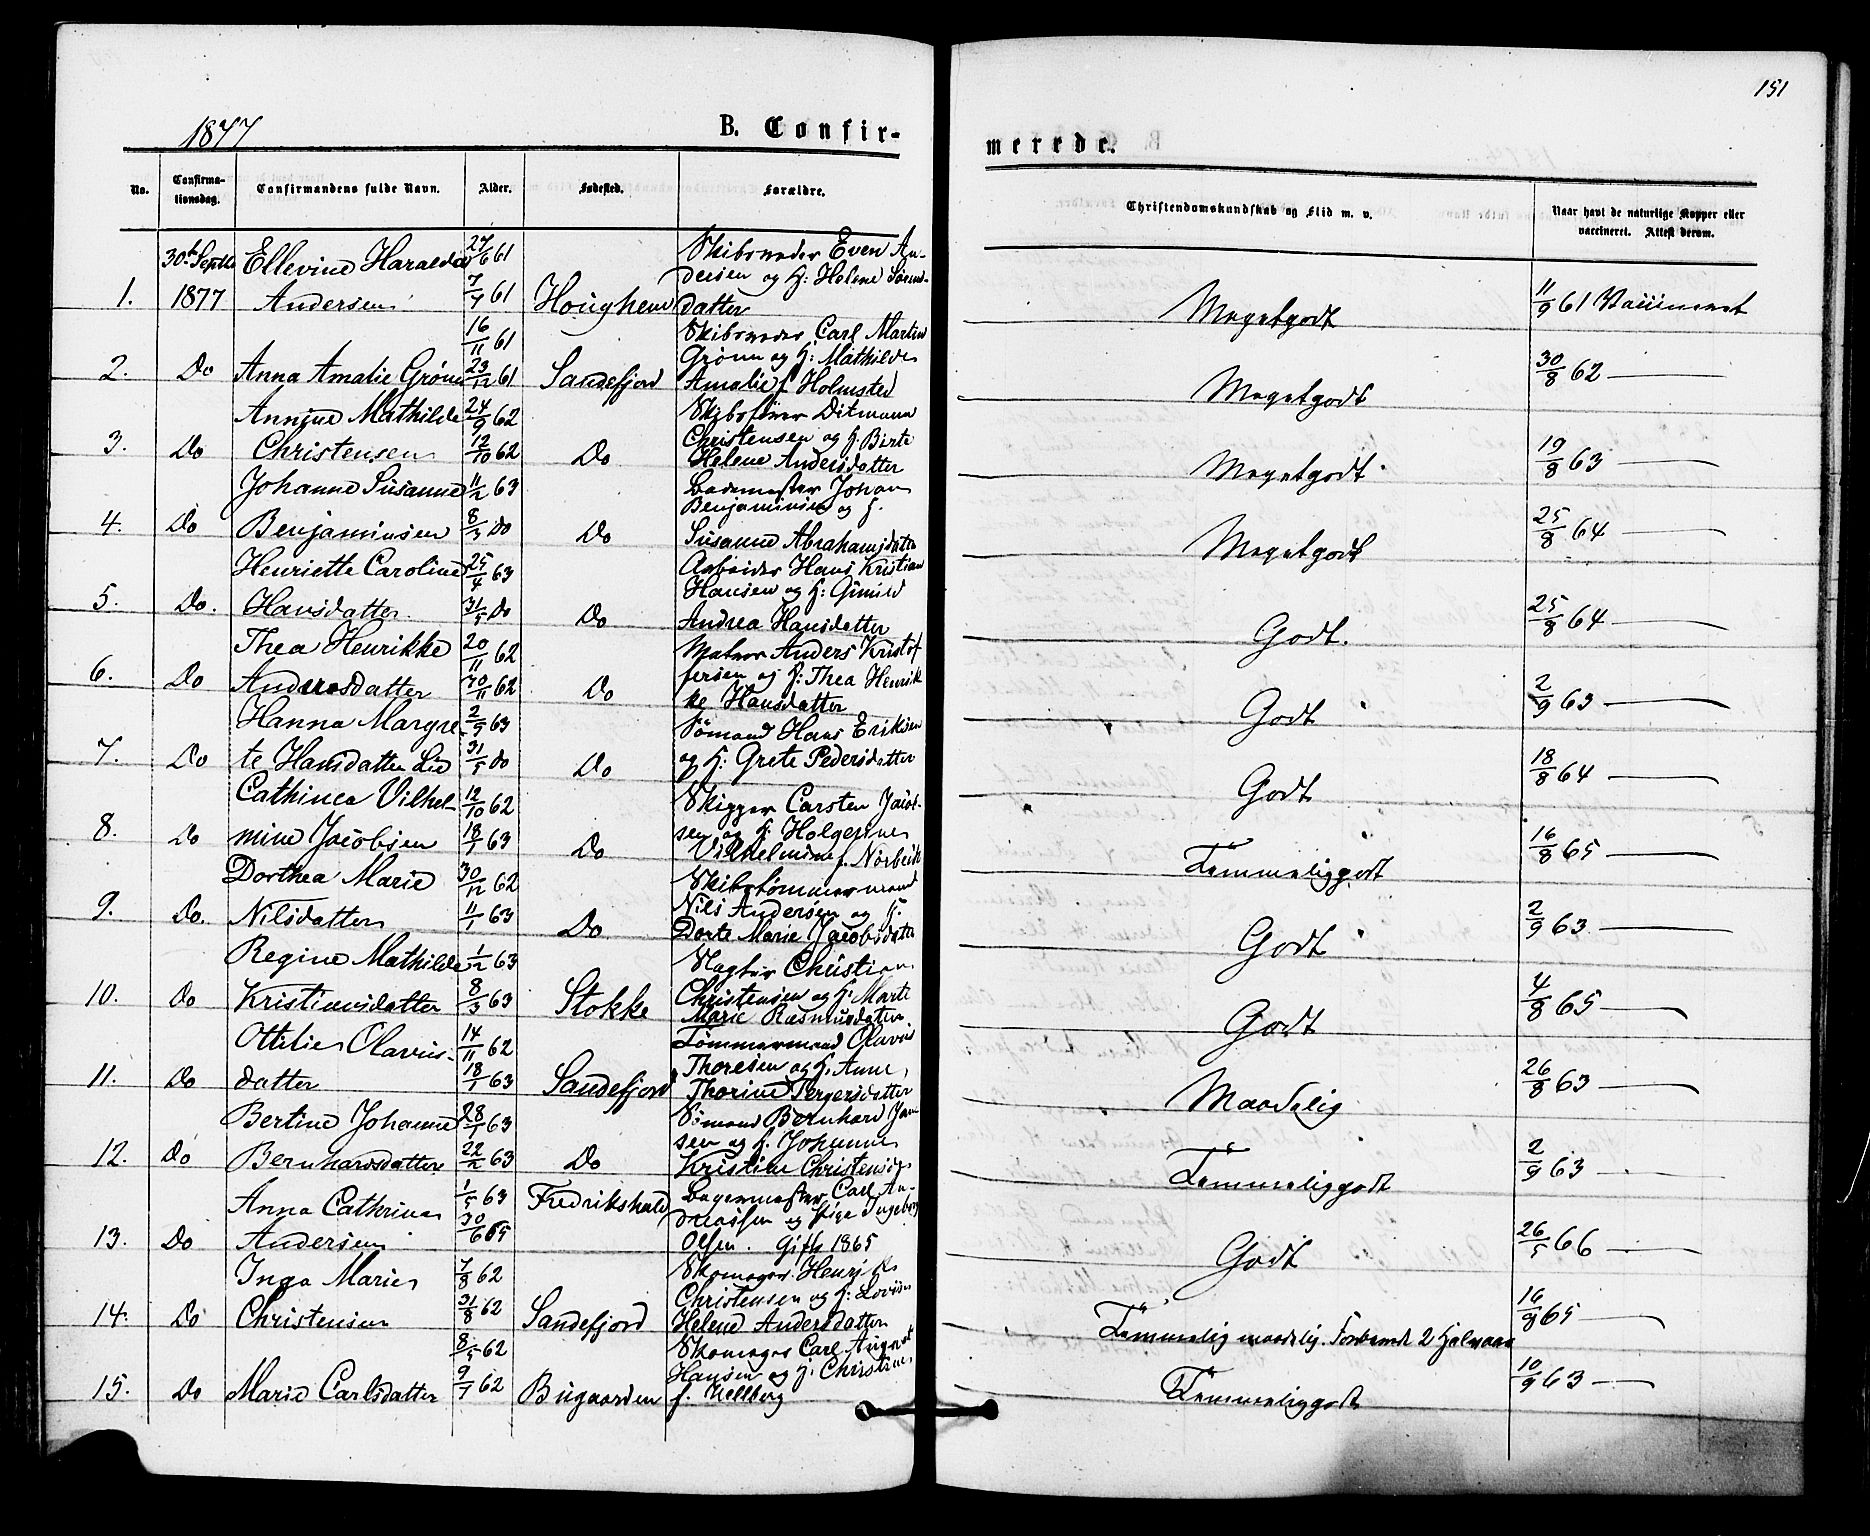 151
1877
B. Confir-
merede.
No.
Confirma-
tionsdag.
Confirmandens fulde Navn.
Alder.
Fødested.
Forældre.
Christendomskundskab og Flid m. v.
Naar havt de naturlige Kopper eller
vaccineret. Attest derom.
30te Septbr Ellevine Haraldia 27/6 61 Skibsreder Even An-
dersen og H: Helene Sørens-
1. 1877 Andersen 7/7 61 datter Megetgodt 11/9 61
16/11 61 Skibsreder Carl Martin
Grønn og H: Mathilde
2. Do Anna Amalie Grønn 23/12 61 Sandefjord Amalie f. Holmsted Megetgodt 30/8 62 —
Annine Mathilde 24/9 62 Skibsfører Ditmann
Christensen og H. Birte
3. Do Christensen 12/10 62 Do Helene Andersdatter Megetgodt 19/8 63 —
Johanne Susanne 11/2 63 Johan
Benjaminsen og H.
4. Do Benjaminsen 8/3 Do Do Susanne Abrahamsdatter Megetgodt 25/8 64 —
Henriette Caroline 25/4 63 Arbeider Hans Kristian
Hansen og H: Gunild
5. Do. Hansdatter. 31/5 Do Do Andrea Hansdatter Godt. 25/8 64 —
Thea Henrikke 20/11 62 Matros Anders Kristof
fersen og H: Thea Henrik
6. Do Andersdatter 30/11 62 Do ke Hansdatter Godt 2/9 63 —
Hanna Margre- 63 Sømand Hans Eriksen
7. Do te Hansdatter Lie 31/5 Do Do og H: Grete Pedersdatter Godt 18/8 64 —
Cathinca Vilhel- 12/10 62 Skipper Carsten Jacob-
sen og H. Holgerine
8. Do mine Jacobsen 18/1 63 Do Vilhelmine f. Temmeliggodt 16/8 65 —
Dorthea Marie 30/12 62 Skibstømmermand
Nils Andersen og H.
9. Do. Nilsdatter 11/1 63 Do Dorte Marie Jacobsdatter Godt 2/9 63 —
Regine Mathilde 1/2 63 Slagter Christian
Christensen og H: Marte
10. Do Kristiansdatter 8/3 63 Stokke Marie Rasmusdatter Godt 4/8 65 —
Ottilie Olavus- 14/11 62 Tømmermand Olavus
Thoresen og H. Anne
11. Do datter 18/1 63 Sandefjord Thorine Torgersdatter Maadelig 26/8 63 —
Bertine Johanne 28/1 63 Sømand Bernhard Jan
sen og H. Johanne
12. Do Bernhardsdatter 22/2 63 Do Kristine Christensdr Temmeliggodt 2/9 63 —
Anna Cathrina 1/5 63 Fredrikshald Bagermester Carl An-
dreassen og Pige Ingeborg
13. Do Andersen 30/6 65 Olsen. Gift 1865 Godt 26/5 66 —
Inga Marie 7/8 62 Skomager Henrik
Christensen og H: Lovise
14. Do Christensen 31/8 62 Sandefjord Helene Andersdatter Temmelig maadelig. 2 65 —
8/5 62 Skomager Carl August
Hansen og H. Christine
15. Do Marie Carlsdatter 9/7 62 Bugaarden f. Hellberg Temmeliggodt 10/9 63 —